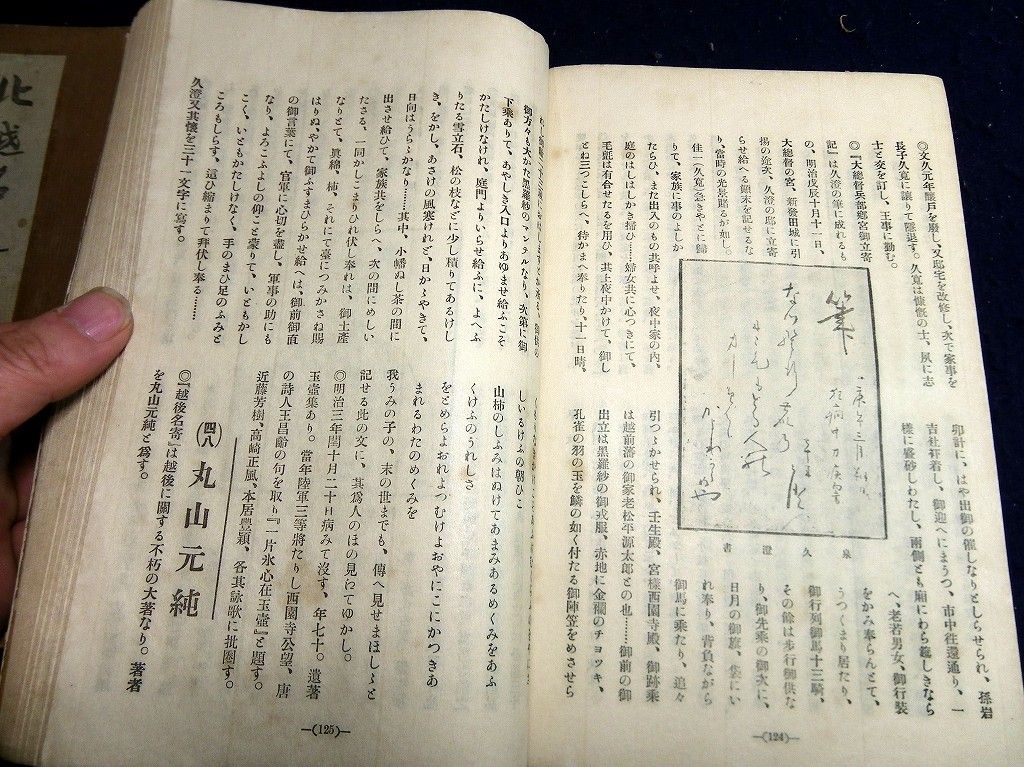 ◎文久元年廢戶を廢し、又邸宅を改修し、次で家事を
長子久寬に讓りて隱退す。久寬は慷慨の士、夙に志
士と交を訂し、王事に勤む。
◎『大總督兵部卿宮御立寄
記』は久澄の筆に成れるも
の、明治戊辰十月十一日、
大總督の宮、新發田城に引
揚の途次、久澄の邸に立寄
らせ給へる顚末を記せるな
り、當時の光景賭るが如し。
佳一（久寬）急ぎやとに歸
りて、家族に事のよしか
たらひ、また出入のもの共呼よせ、夜中家の內、
庭のはしはしかき掃ひ……婦女共に心つきにて、
毛氈は有合せたるを用ひ、其上夜中かけて、御し
とね三つこしらへ、待かまへ奉りたり、十一日晴、
筆
泉久澄書
卯計に、はや出御の催しなりとしらせられ、孫岩
吉社裃着し、御迎へにまうつ、市中往還通り、一
樣に盛砂しわたし、兩側とも廂にわら莚しきなら
へ、老若男女、御行裝
をかみ奉らんとて、
うつくまり居たり、
御行列御馬十三騎、
その餘は步行御供な
り、御先乘の御次に、
日月の御旗、袋にい
れ奉り、背負ながら
御馬に乘たり、追々
引つゝかせられ、壬生殿、宮樣西園寺殿、御跡乘
は越前藩の御家老松平源太郞との也……御前の御
出立は黑羅紗の御戎服、赤地に金襴のチョッキ、
孔雀の羽の玉を鱗の如く付たる御陣笠をめさせら
―(124)―
御方々も大かた黑羅紗のマンテルなり、次第に御
下乘ありて、あやしき入口よりあゆませ給ふこそ
かたしけなけれ、庭門よりいらせ給ふに、よへふ
りたる雪立石、松の枝などに少し積りてあるけし
き、をかし、あさけの風寒けれど、日かゝやきて、
日向はうらゝかなり……其中、小幡ぬし茶の間に
出させ給ひて、家族共をしらへ、次の間にめしい
たさる、一同かしこまりひれ伏し奉れは、御土產
なりとて、眞綿、柿、それにて臺につみかさね賜
はりぬ、やかて御ふすまひらかせ給へは、御前御直
の御言葉にて、官軍に心切を盡し、軍事の助にも
なり、よろこふよしの仰こと蒙りて、いともかし
こく、いともかたしけなく、手のまひ足のふみと
ころもしらす、這ひ縮まりて拜伏し奉る……
久澄又其懷を三十一文字に寫す。
しいるけふの朝ひこ
山柿のしふみはぬけてあまみあるめくみをあふ
くけふのうれしさ
をとめらよおれよつむけよおやにこにかつきあ
まれるわたのめくみを
我うみの子の、末の世までも、傳へ見せまほしゝと
記せる此の文に、其爲人のほの見はてゆかし。
◎明治三年閏十月二十日病みて沒す、年七十。遺著
玉壺集あり。當年陸軍三等將たりし西園寺公望、唐
の詩人王昌齡の句を取り『一片氷心在玉壺』と題す。
近藤芳樹、高崎正風、本居豐穎、各其詠歌に批圈す。
(四八) 丸山元純
◎『越後名寄』は越後に關する不朽の大著なり。著者
を丸山元純と爲す。
―(125)―
北越